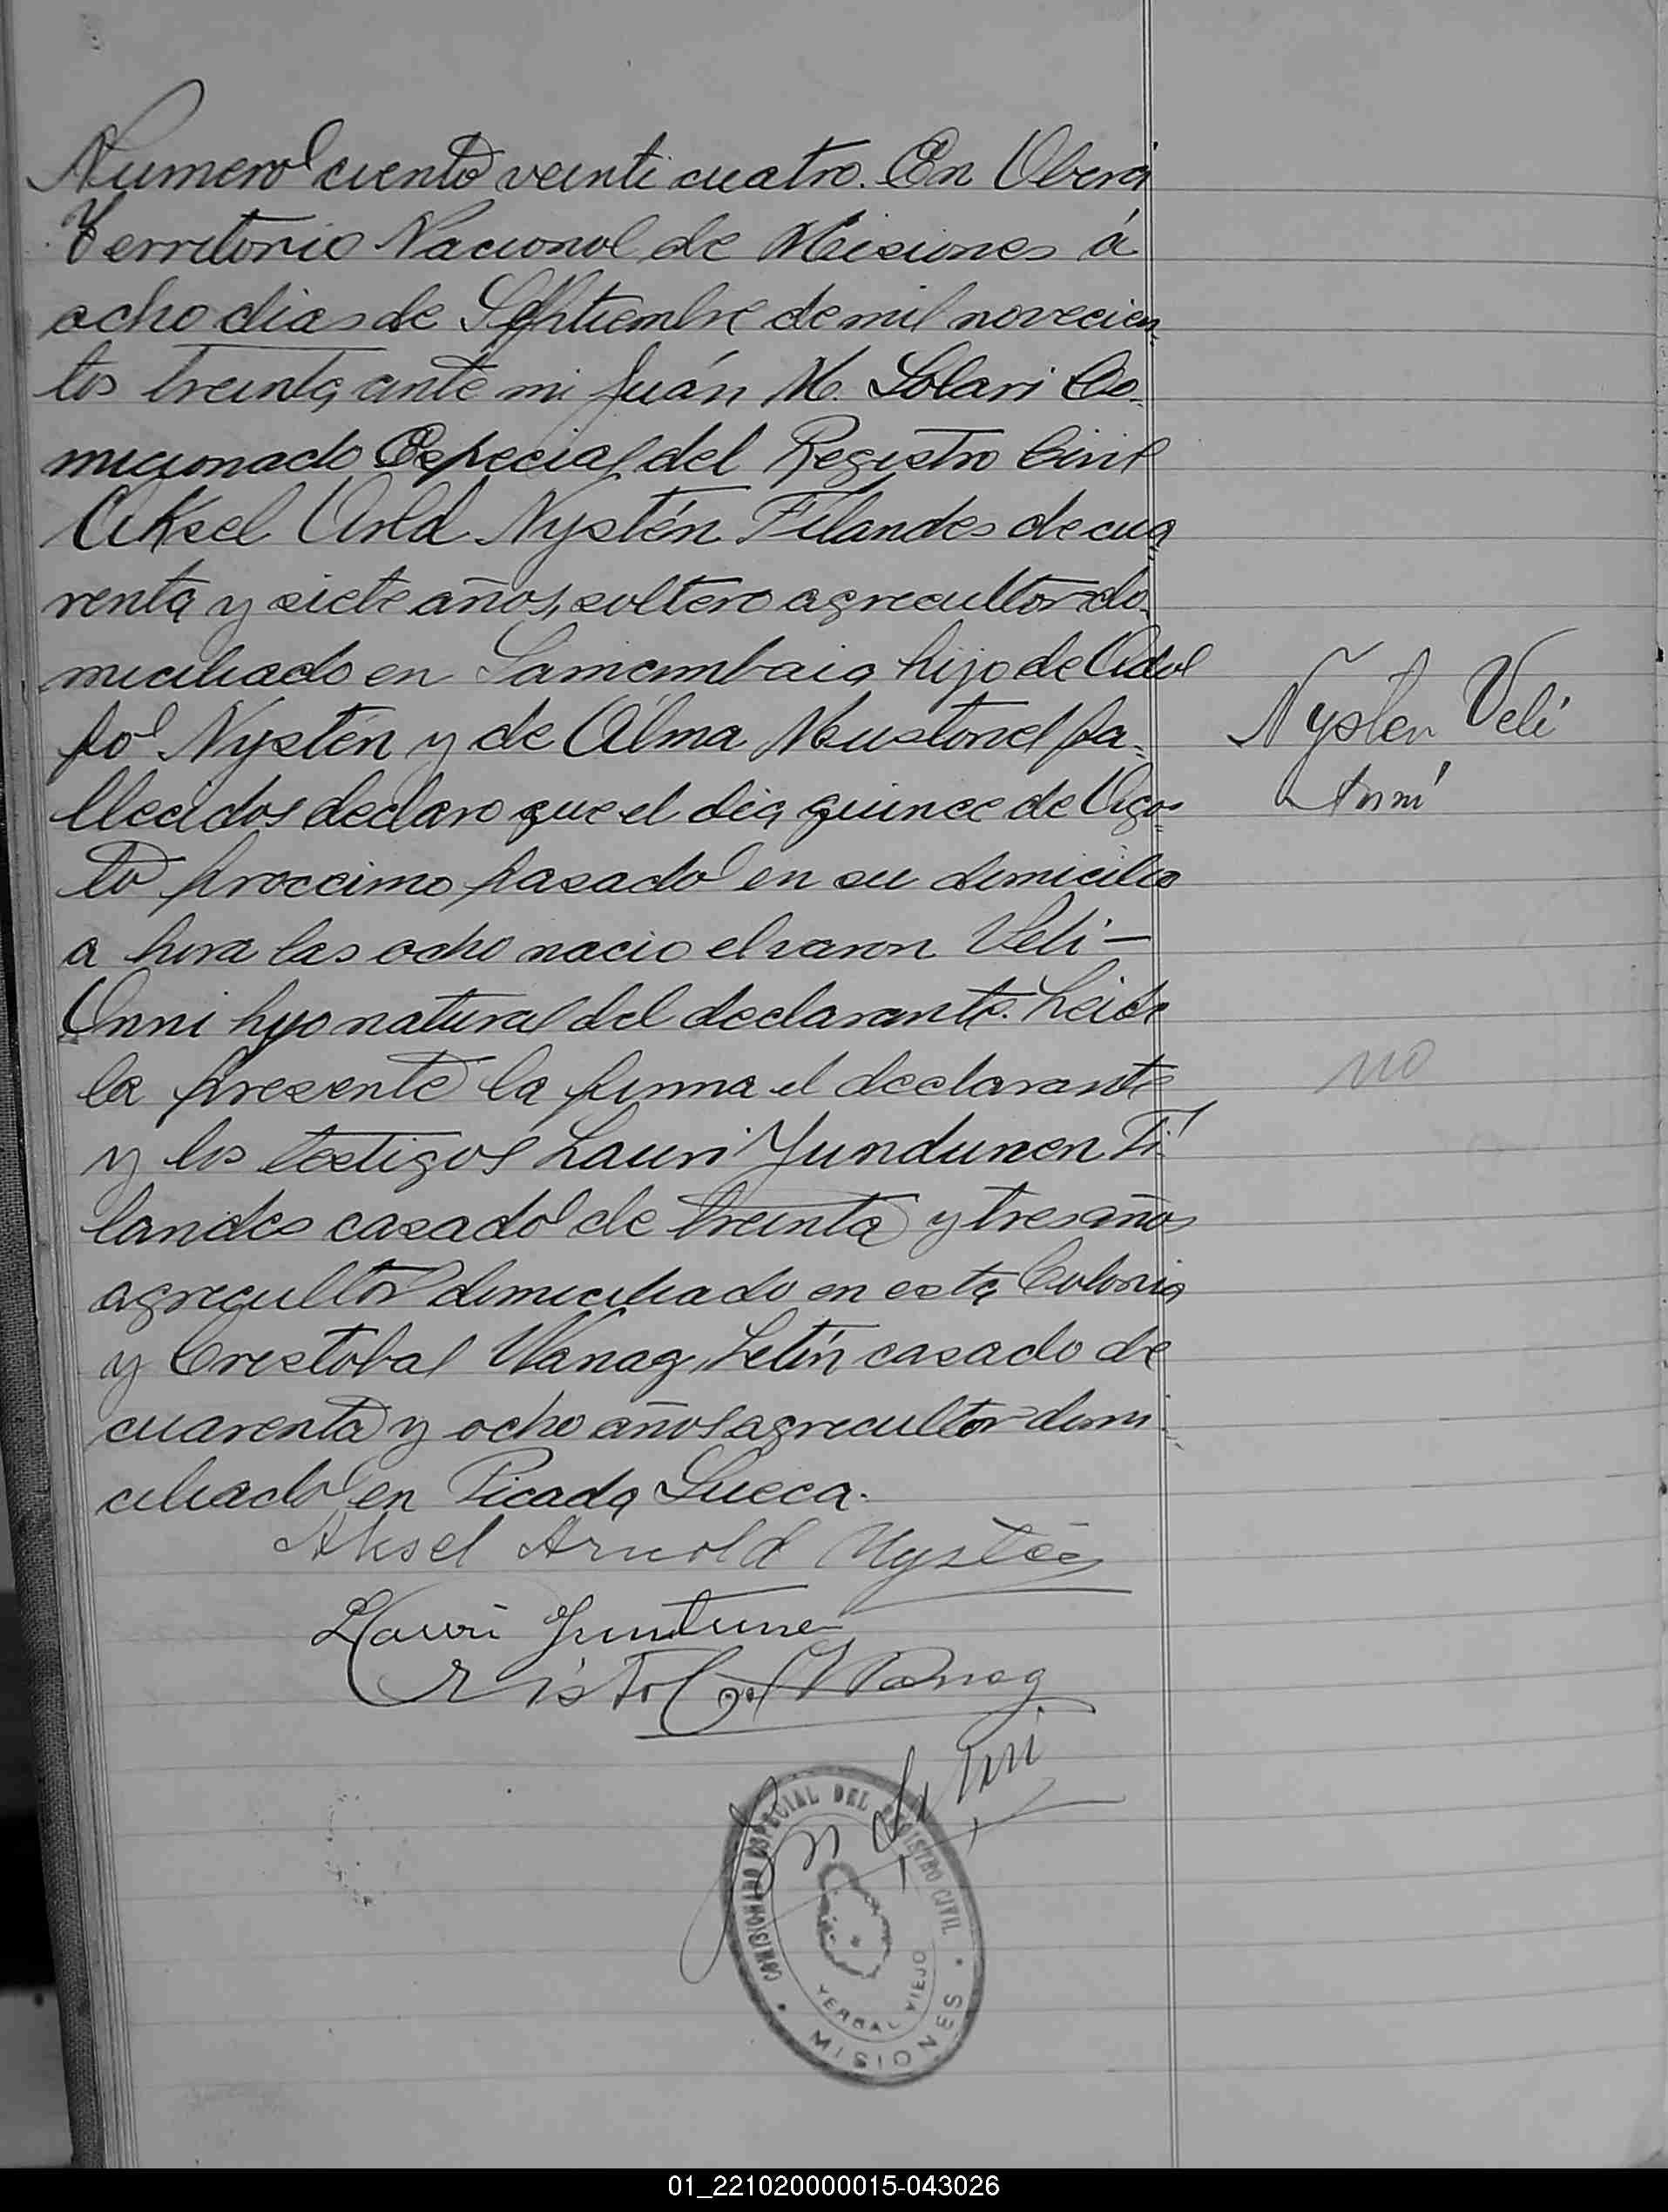 Numero ciento veinti cuatro. En Oberá
Territorio Nacional de Misiones á
ocho dias de Septiembre de mil novecien
tos treinta ante mi Juán M. Solari Co-
micionado Especial del Registro Civil
Aksel Nystén Filandes de cua
renta y siete años, soltero agricultor do-
miciliado en hijo de Adol
fo Nystén y de Alma fa-
llecidos declaro que el dia quince de Agos
to proccimo pasado en su domicilio
a hora las ocho nacio el varon Veli-
Onni hijo natural del declarante. Leida
la presente la firma el declarante
y los testigos Lauri Yundunen Fi-
landes casado de treinta y tres años
agricultor domiciliado en esta Colonia
y Cristobal Wanag Letín casado de
cuarenta y ocho años agricultor domi-
ciliado en Picada Sueca.
Aksel Arnold Nystén
Lauri Juntunen
Cristobal Wanag
Nysten Veli
no
COMISIONADO ESPECIAL DEL REGISTRO CIVIL
YERBAL VIEJO
MISIONES
01_221020000015-043026